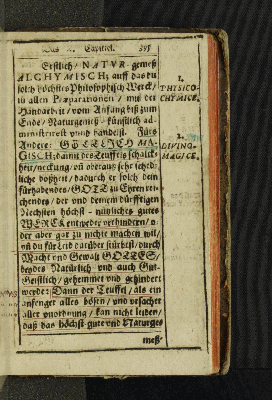 Das X. Capittel. 355
Erstlich / NATUR-gemeß
ALCHYMISCH; auff das du
solch höchstes Philosophisch Werck /
in allen Præparationen / mit der
Handarbeit / vom Anfang biß zum
Ende / Naturgemeß künstlich ad-
ministrirest und handelst. Fürs
Andere: GÖTTLICH MA-
GISCH; dann des Teuffels schalck-
heit / neckung / uñ
liche boßheit / dadurch er solch dein
fürhabendes / GOTT zu Ehren rei-
chendes / der und deinem dürfftigen
Nechsten höchst-nützliches gutes
WERCK entweder verhindern / o-
der aber gar zu nichte machen wil /
uñ du für Leid darüber stürbest / durch
Macht und Gewalt GOTTES /
beydes Natürlich und auch Gut-
Geistlich / gehemmet und gehindert
werde: Dann der Teuffel / als ein
anfenger alles bösen / und ursacher
aller unordnung / kan nicht leiden /
daß das höchst-gute und Naturge-
meß-
1.
PHYSICO-
CHYMICE.
2.
DIVINO-
MAGICE.